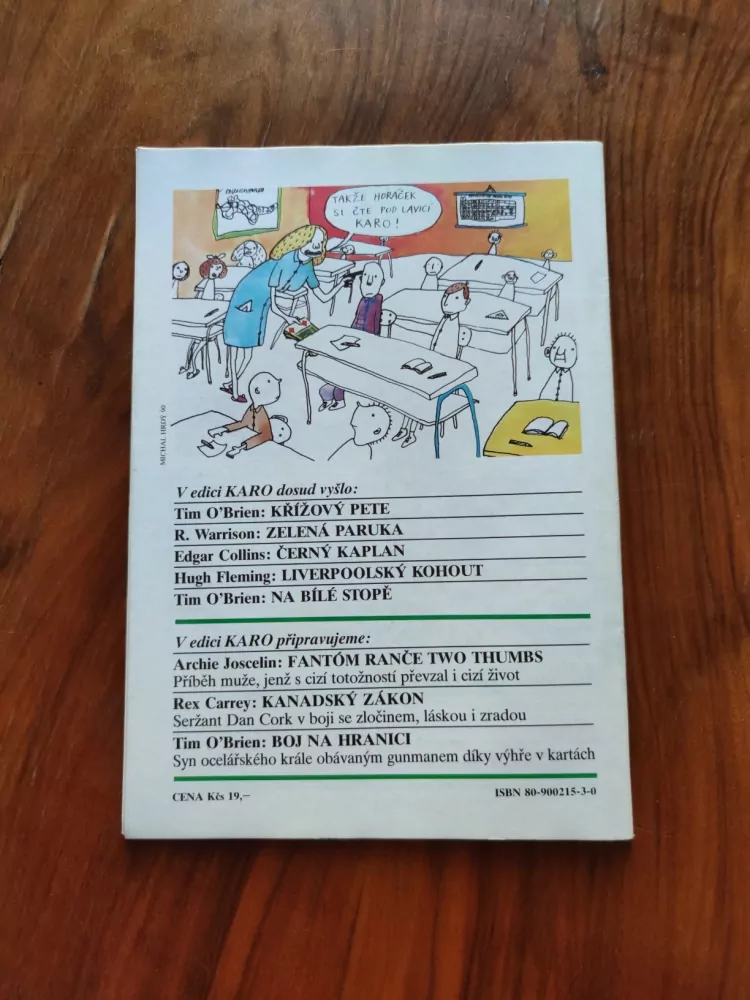 TAKŽE HORÁČEK
SI ČTE POD LAVICÍ
KARO!
MICHAL HRDÝ 90
V edici KARO dosud vyšlo:
Tim O'Brien: KŘÍŽOVÝ PETE
R. Warrison: ZELENÁ PARUKA
Edgar Collins: ČERNÝ KAPLAN
Hugh Fleming: LIVERPOOLSKÝ KOHOUT
Tim O'Brien: NA BÍLÉ STOPĚ
V edici KARO připravujeme:
Archie Joscelin: FANTÓM RANČE TWO THUMBS
Příběh muže, jenž s cizí totožností převzal i cizí život
Rex Carrey: KANADSKÝ ZÁKON
Seržant Dan Cork v boji se zločinem, láskou i zradou
Tim O'Brien: BOJ NA HRANICI
Syn ocelářského krále obávaným gunmanem díky výhře v kartách
CENA Kčs 19,–
ISBN 80-900215-3-0